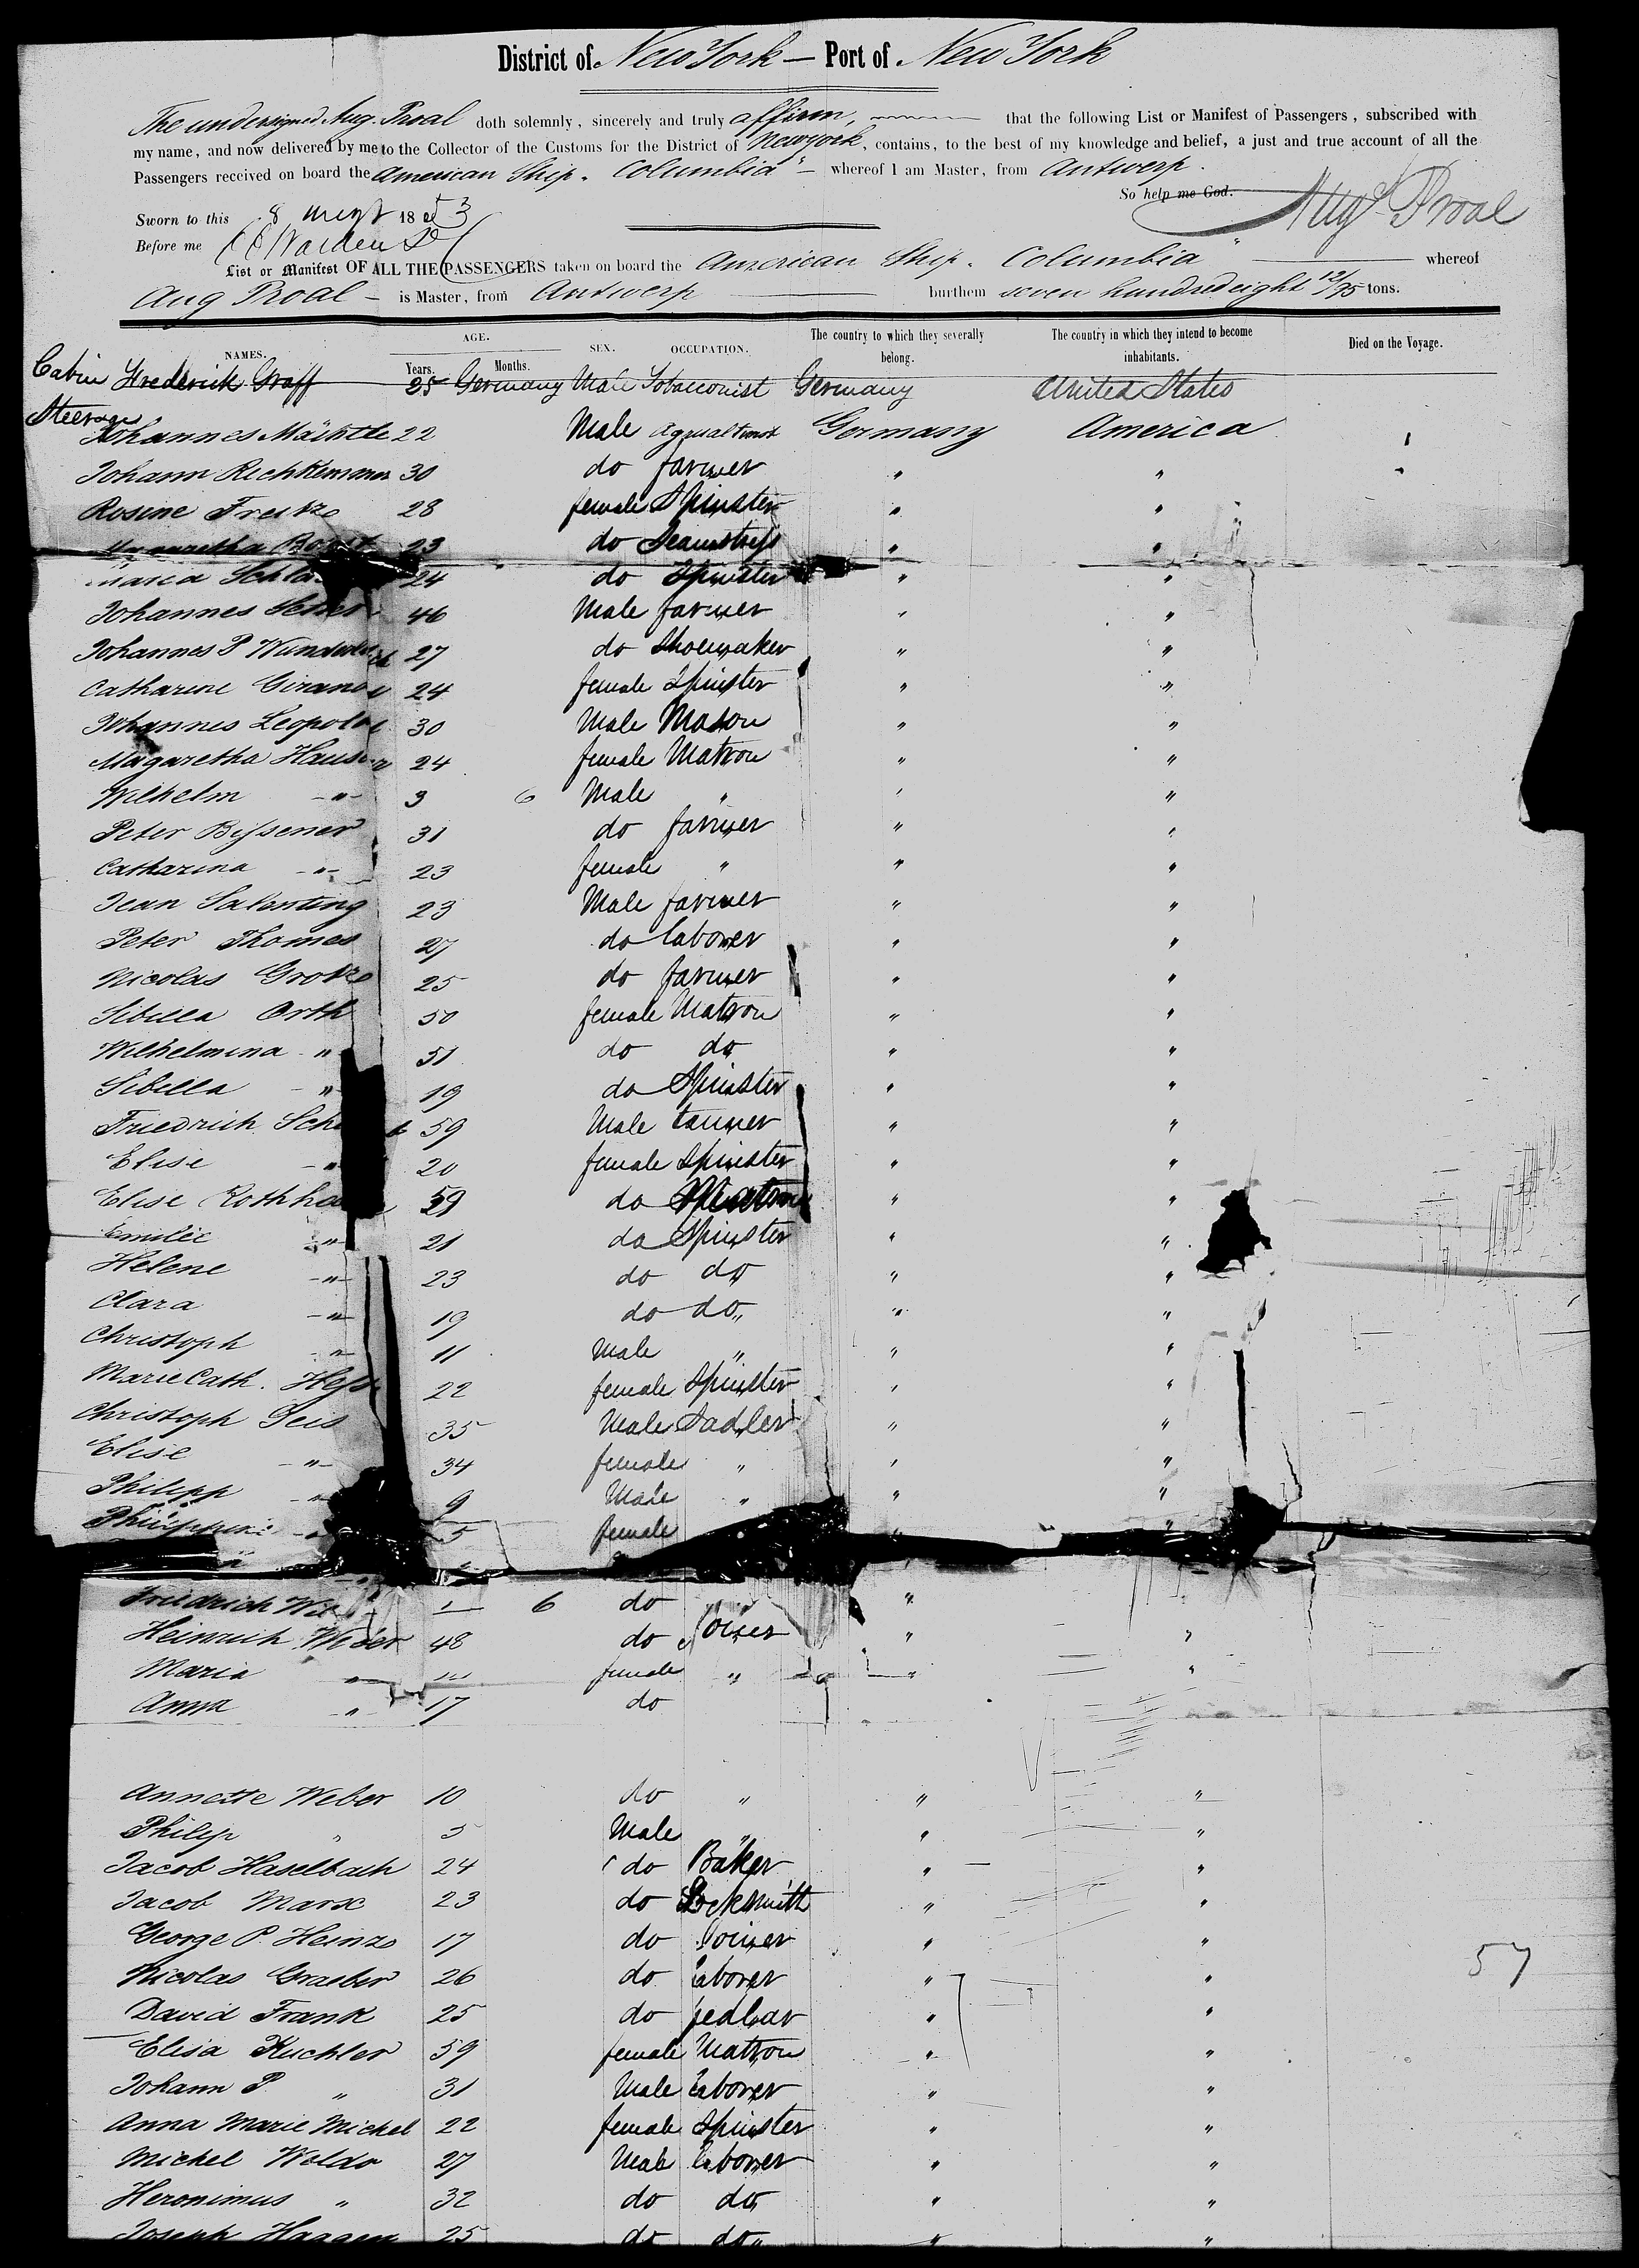 District of New York — Port of New York
The undersigned Aug. Proal doth solemnly, sincerely and truly affirm, that the following List or Manifest of Passengers, subscribed with
my name, and now delivered by me to the Collector of the Customs for the District of Newyork, contains, to the best of my knowledge and belief, a just and true account of all the
Passengers received on board the American Ship. Columbia — whereof I am Master, from Antwerp.
So help me God.
Augt Proal
Sworn to this 8 18
Before me
List or Manifest OF ALL THE PASSENGERS taken on board the American Ship. Columbia whereof
Aug Proal — is Master, from Antwerp burthem seven hundred eight 12/95 tons.
NAMES. AGE. Years. Months. SEX. OCCUPATION. The country to which they severally belong. The country in which they intend to become inhabitants. Died on the Voyage.
Cabin Frederick Graff 25 Germany Male Tobacconist Germany United States
Steerage
Johannes 22 Male Germany America
Johann 30 do farmer " "
Rosine 28 female Spinster " "
23 do Seamstress " "
24 do Spinster " "
Johannes 46 Male farmer " "
Johannes P 27 do Shoemaker " "
Catharine 24 female Spinster " "
Johannes Leopold 30 Male Mason " "
Magaretha 24 female Matron " "
Wilhelm -"- 3 6 Male " " "
Peter Bissener 31 do farmer " "
Catharina -"- 23 female " " "
Jean Salenting 23 Male farmer " "
Peter Thomes 27 do laborer " "
Nicolas 25 do farmer " "
Sibilla Orth 50 female Matron " "
Wilhelmina -"- 51 do do " "
Sibilla -"- 19 do Spinster " "
Friedrich 59 Male tanner " "
Elise -"- 20 female Spinster " "
Elise 59 do " "
Emilie -"- 21 do Spinster " "
Helene -"- 23 do do " "
Clara -"- 19 do do " "
Christoph -"- 11 Male " " "
Marie Cath. 22 female Spinster " "
Christoph Geis 35 Male Sadler " "
Elise -"- 34 female " " "
Philipp -"- 9 Male " " "
5 female " "
Friedrich 6 do "
Heinrich Weber 48 do Joiner " "
Maria " female " " "
Anna " 17 do
Annette Weber 10 do " " "
Philip " 5 Male " " "
Jacob Haselbach 24 do Baker " "
Jacob Marx 23 do Locksmith " "
George P. Heinz 17 do Joiner " "
Nicolas Graeber 26 do laborer " "
David Frank 25 do pedlar " "
Elisa Kuchler 59 female Matron " "
Johann P. " 31 Male laborer " "
Anna Marie Michel 22 female Spinster " "
Michel 27 Male laborer " "
Heronimus " 32 do do " "
Joseph 25 do do " "
57